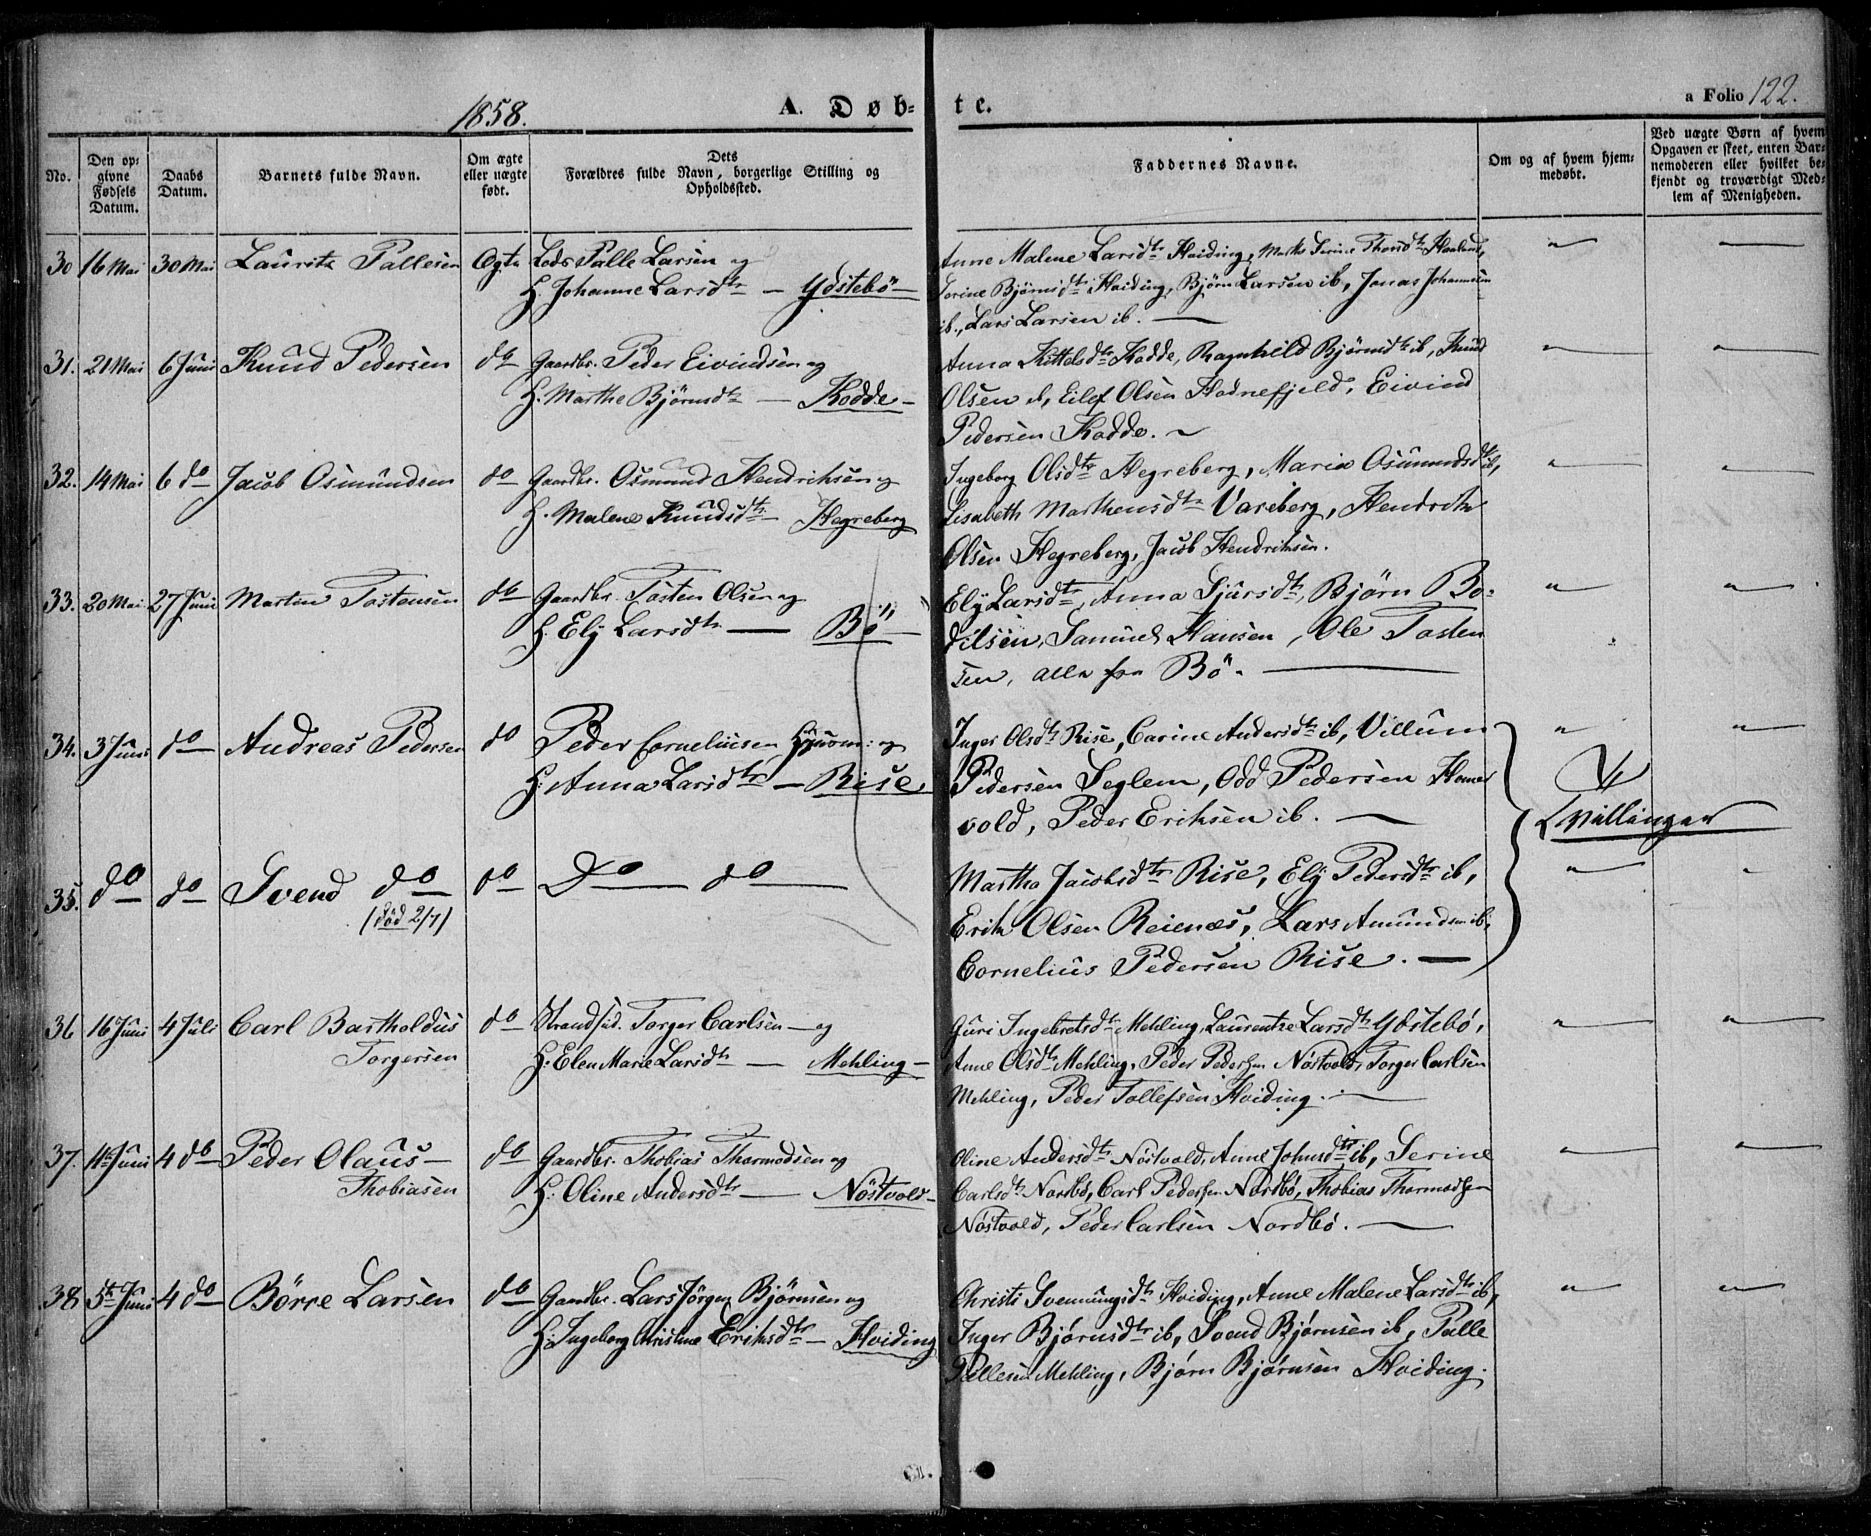 1858. A. Døb- te. a Folio 122.
No.
Den op-
givne
Fødsels
Datum.
Daabs
Datum.
Barnets fulde Navn.
Om ægte
eller uægte
født.
Dets
Forældres fulde Navn, borgerlige Stilling og
Opholdssted.
Faddernes Navne.
Om og af hvem hjem-
medøbt.
Ved uægte Børn af hvem
Opgaven er skeet, enten Bar-
nemoderen eller hvilket be-
kjendt og troværdigt Med-
lem af Menigheden.
30 16 Mai 30 Mai Lauritz Pallesen Ægte Lods Palle Larsen og
H Johanne Larsdtr — Ydstebö —
Anne Malene Larsdtr Hviding, Marthe Serine Haaland,
Serine Bjørnsdtr Hviding, Bjørn Larsen ib, Jonas Johannesen
ib., Lars Larsen ib. —
31. 21 Mai 6 Juni Knud Pedersen do Gaardbr. Peder Eivindsen og
H. Marthe Bjørnsdtr — Hodde —
Anna Kittelsdtr Hodde, Ragnhild Bjørnsdtr ib, Knud
Olsen ib, Eilef Olsen Hodnefjeld, Eivind
Pedersen Hodde. ~
32. 14 Mai 6 do Jacob Osmundsen do Gaardbr. Osmund Hendriksen og
H. Malene Knudsdtr — Hegreberg
Ingeborg Olsdtr Hegreberg, Maria Osmundsdtr ib,
Lisabeth Marthensdtr Vareberg, Hendrik
Olsen Hegreberg, Jacob Hendriksen.
33. 20 Mai 27 Juni Marten Tostensen do Gaardbr. Tosten Olsen og
H. Elj Larsdtr — Bö —
Elj Larsdtr, Anna Sjursdtr, Bjørn Bo-
dilsen, Samuel Hansen, Ole Tosten
sen, alle fra Bö. —
34. 3 Juni do Andreas Pedersen do Peder Corneliusen Huusm: og
H: Anna Larsdtr — Rise
Inger Olsdtr Rise, Carine Andersdtr ib, Villum
Pedersen Seglem, Odd Pedersen Homer
vold, Peder Eriksen ib. —
Tvillinger
35. do do Svend do do Do do
(död 2/7)
Martha Jacobsdtr Rise, Elj Pedersdtr ib,
Erik Olsen Reienæs, Lars Amundsen ib,
Cornelius Pedersen Rise. —
36 16 Juni 4 Juli Carl Bartholdus do Strandsid. Torger Carlsen — og
Torgersen H: Elen Marie Larsdtr — Mehling —
Guri Ingebretsdtr Mehling, Laurentze Larsdtr Ydstebø,
Anne Olsdtr Mehling, Peder Pedersen Nöstvold, Torger Carlsen
Mehling, Peder Tollefsen Hviding. —
37. 11te Juni 4 do Peder Olaus — do Gaardbr. Thobias Thormodsen og
Thobiasen H: Oline Andersdtr — Nöstvold —
Oline Andersdtr Nöstvold, Anne Johnsdtr ib, Serine
Carlsdtr Nordbø, Carl Pedersen Nordbø, Thobias Thormodsen
Nöstvold, Peder Carlsen Nordbø. —
38 5te Juni 4 do Börre Larsen do Gaardbr. Lars Jörgen Bjørnsen og
H: Ingeborg Christine Eriksdtr — Hviding
Christi Svennungsdtr Hviding, Anne Malene Larsdtr ib,
Inger Bjørnsdtr ib, Svend Bjørnsen ib, Palle
Pallesen Mehling, Bjørn Bjørnsen Hviding.